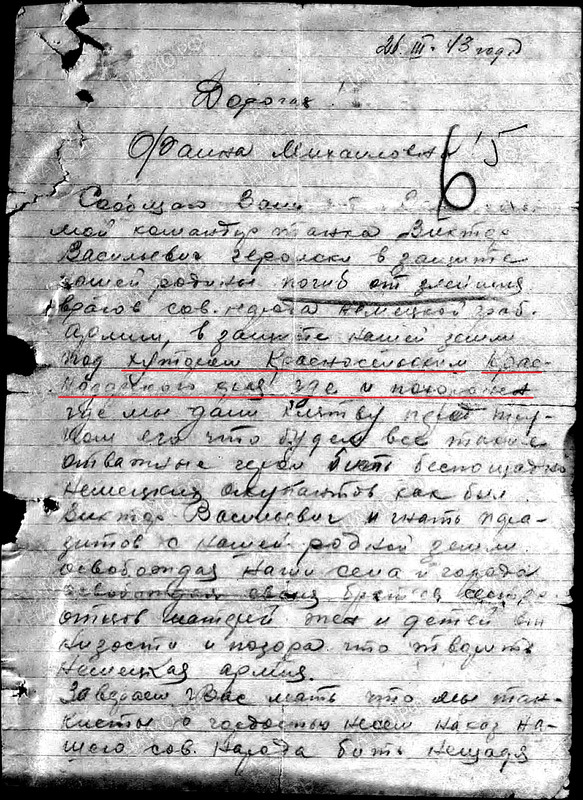 26. III. 43 года
Дорогая!
Фаина Михайловна
65
Сообщаю Вам
мой командир танка Виктор
Васильевич геройски в защите
нашей родины погиб от злейших
врагов сов. народа немецкой граб.
армии, в защите нашей земли
под хутором Красносельским Крас-
нодарского края где и похоронен
где мы дали клятву перед тру-
пом его что будем все такие
отважные герои бить беспощадно
немецких окупантов как был
Виктор Васильевич и гнать пара-
зитов с нашей родной земли
освобождая наши села и города
освобождая своих братьев сестер
отцов матерей жен и детей от
низости и позора что творит
немецкая армия.
Заверяем Вас мать что мы тан-
кисты с гордостью несем наказ на-
шего сов. народа бить нещадя